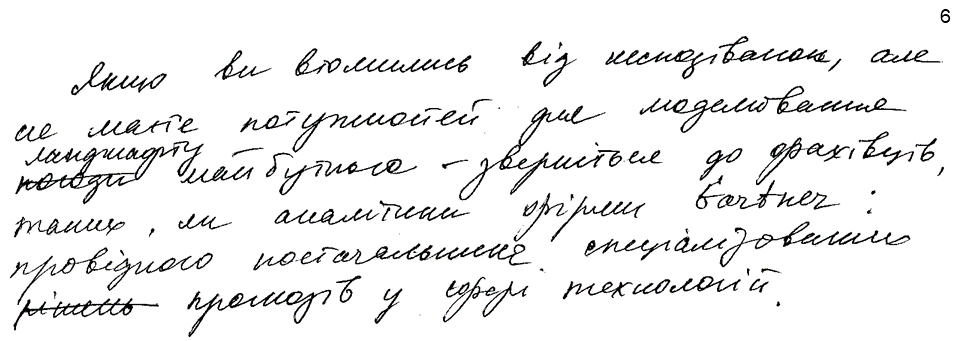 6
Якщо ви втомились від несподіванок, але
не маєте потужностей для моделювання
ландшафту
погоди майбутнього – зверніться до фахівців,
таких, як аналітики фірми Gartner:
провідного постачальника спеціалізованих
рішень прогнозів у сфері технологій.